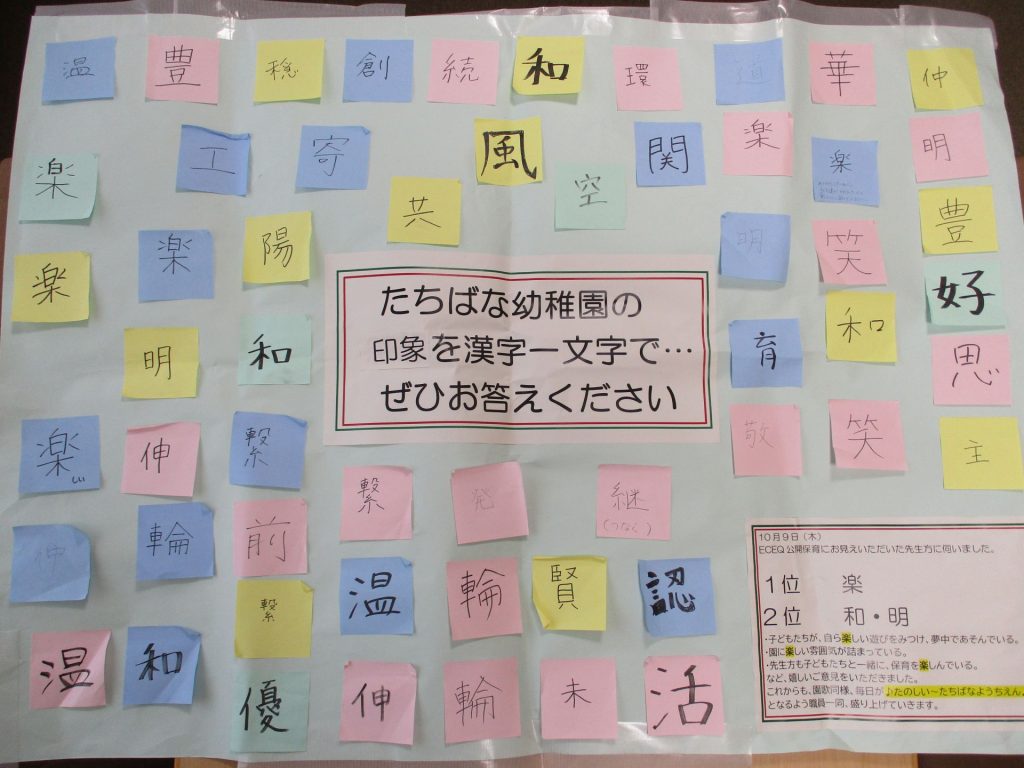 温 豊 穏 創 続 和 環 道 華 仲
楽 工 寄 風 関 楽 楽 明
共 空
楽 楽 陽 明 笑 豊
明 和 育 和 好
思
たちばな幼稚園の
印象を漢字一文字で…
ぜひお答えください
楽 伸 繋 敬 笑 主
しい
繋 発 継
(つなぐ)
伸 輪 前
繋 温 輪 賢 認
温 和 優 伸 輪 未 活
10月9日(木)
ECEQ公開保育にお見えいただいた先生方に伺いました。
1位 楽
2位 和・明
・子どもたちが、自ら楽しい遊びをみつけ、夢中であそんでいる。
・園に楽しい雰囲気が詰まっている。
・先生方も子どもたちと一緒に、保育を楽しんでいる。
など、嬉しいご意見をいただきました。
これからも、園歌同様、毎日が♪たのしい~たちばなようちえん♪
となるよう職員一同、盛り上げていきます。